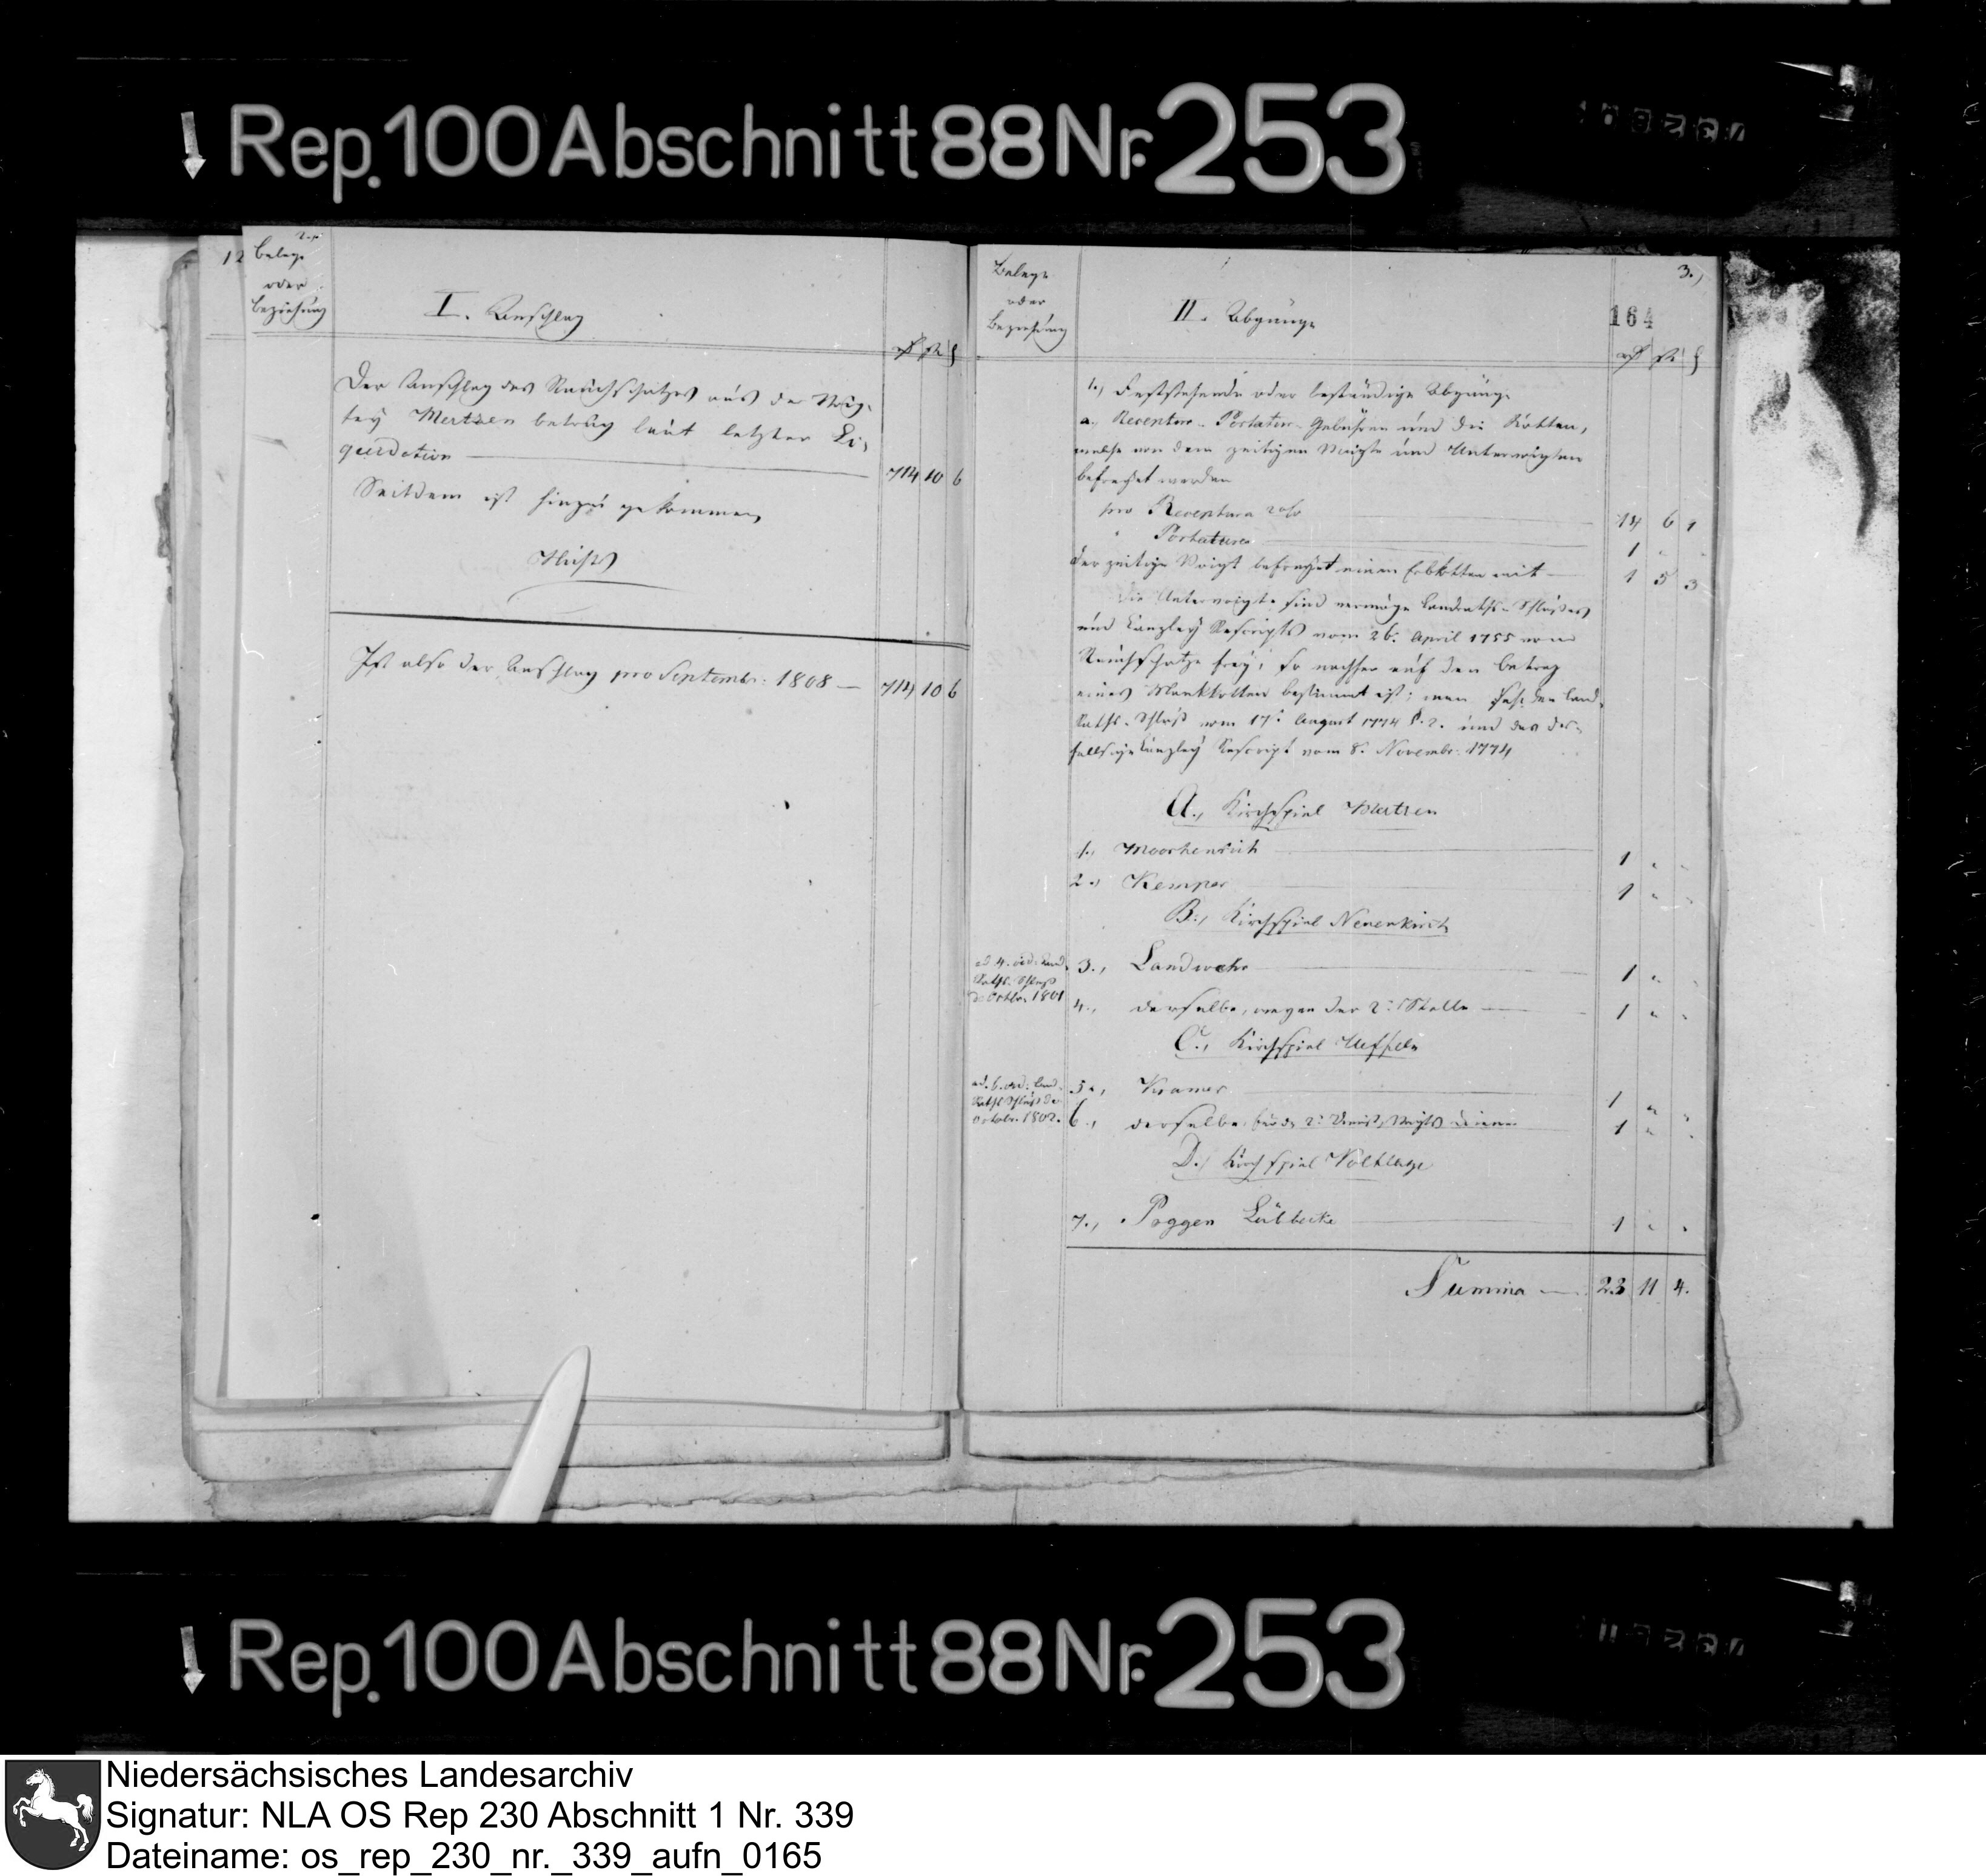 Rep. 100 Abschnitt 88 Nr. 253
12
2.
Belege
oder
Beziehung
I. Anschlag
Der Anschlag des Rauchschatzes aus der Voig-
tey Mertzen betrug laut letzter Li-
quidation 714 10 6
Seitdem ist hinzu gekommen
Nichts
Ist also der Anschlag pro Septembr: 1808 — 714 10 6
3.)
164
Belege
oder
Beziehung
II. Abgänge
1., Feststehende oder beständige Abgänge
a., Receptur- Portatur- Gebühren und die Kotten,
welche von dem zeitigen Voigte und Untervoigten
befreyet werden
pro Receptura 2 % 14 6 1
" Portatura 1 " "
der zeitige Voigt befreyet einen Erbkotten mit — 1 5 3
Die Untervoigte sind vermöge Landraths-Schlusses
und Kanzley Rescripts vom 26. April 1755 vom
Rauchschatze frey; so nachher auf den Betrag
eines Markkotten bestimmt ist; man sehe den Land-
Raths-Schluß vom 17. August 1774 §. 2. und das des-
fallsige Kanzley Rescript vom 8. Novembr: 1774
A., Kirchspiel Mertzen
1., 1 " "
2., Kemper 1 " "
B., Kirchspiel Neuenkirch
ad 4. vid. Land
Raths Schluß
de Octbr. 1801
3., Landwehr 1 " "
4., derselbe, wegen der 2. Stelle — 1 " "
C., Kirchspiel Ueffeln
ad. 6. vid: Land-
Raths Schluß de
Octobr. 1802.
5., Kramer 1 " "
6., derselbe, 1 " "
D., Kirchspiel Voltlage
7., Poggen Lübbecke 1 " "
Summa — 23 11 4.
Rep. 100 Abschnitt 88 Nr. 253
Niedersächsisches Landesarchiv
Signatur: NLA OS Rep 230 Abschnitt 1 Nr. 339
Dateiname: os_rep_230_nr._339_aufn_0165